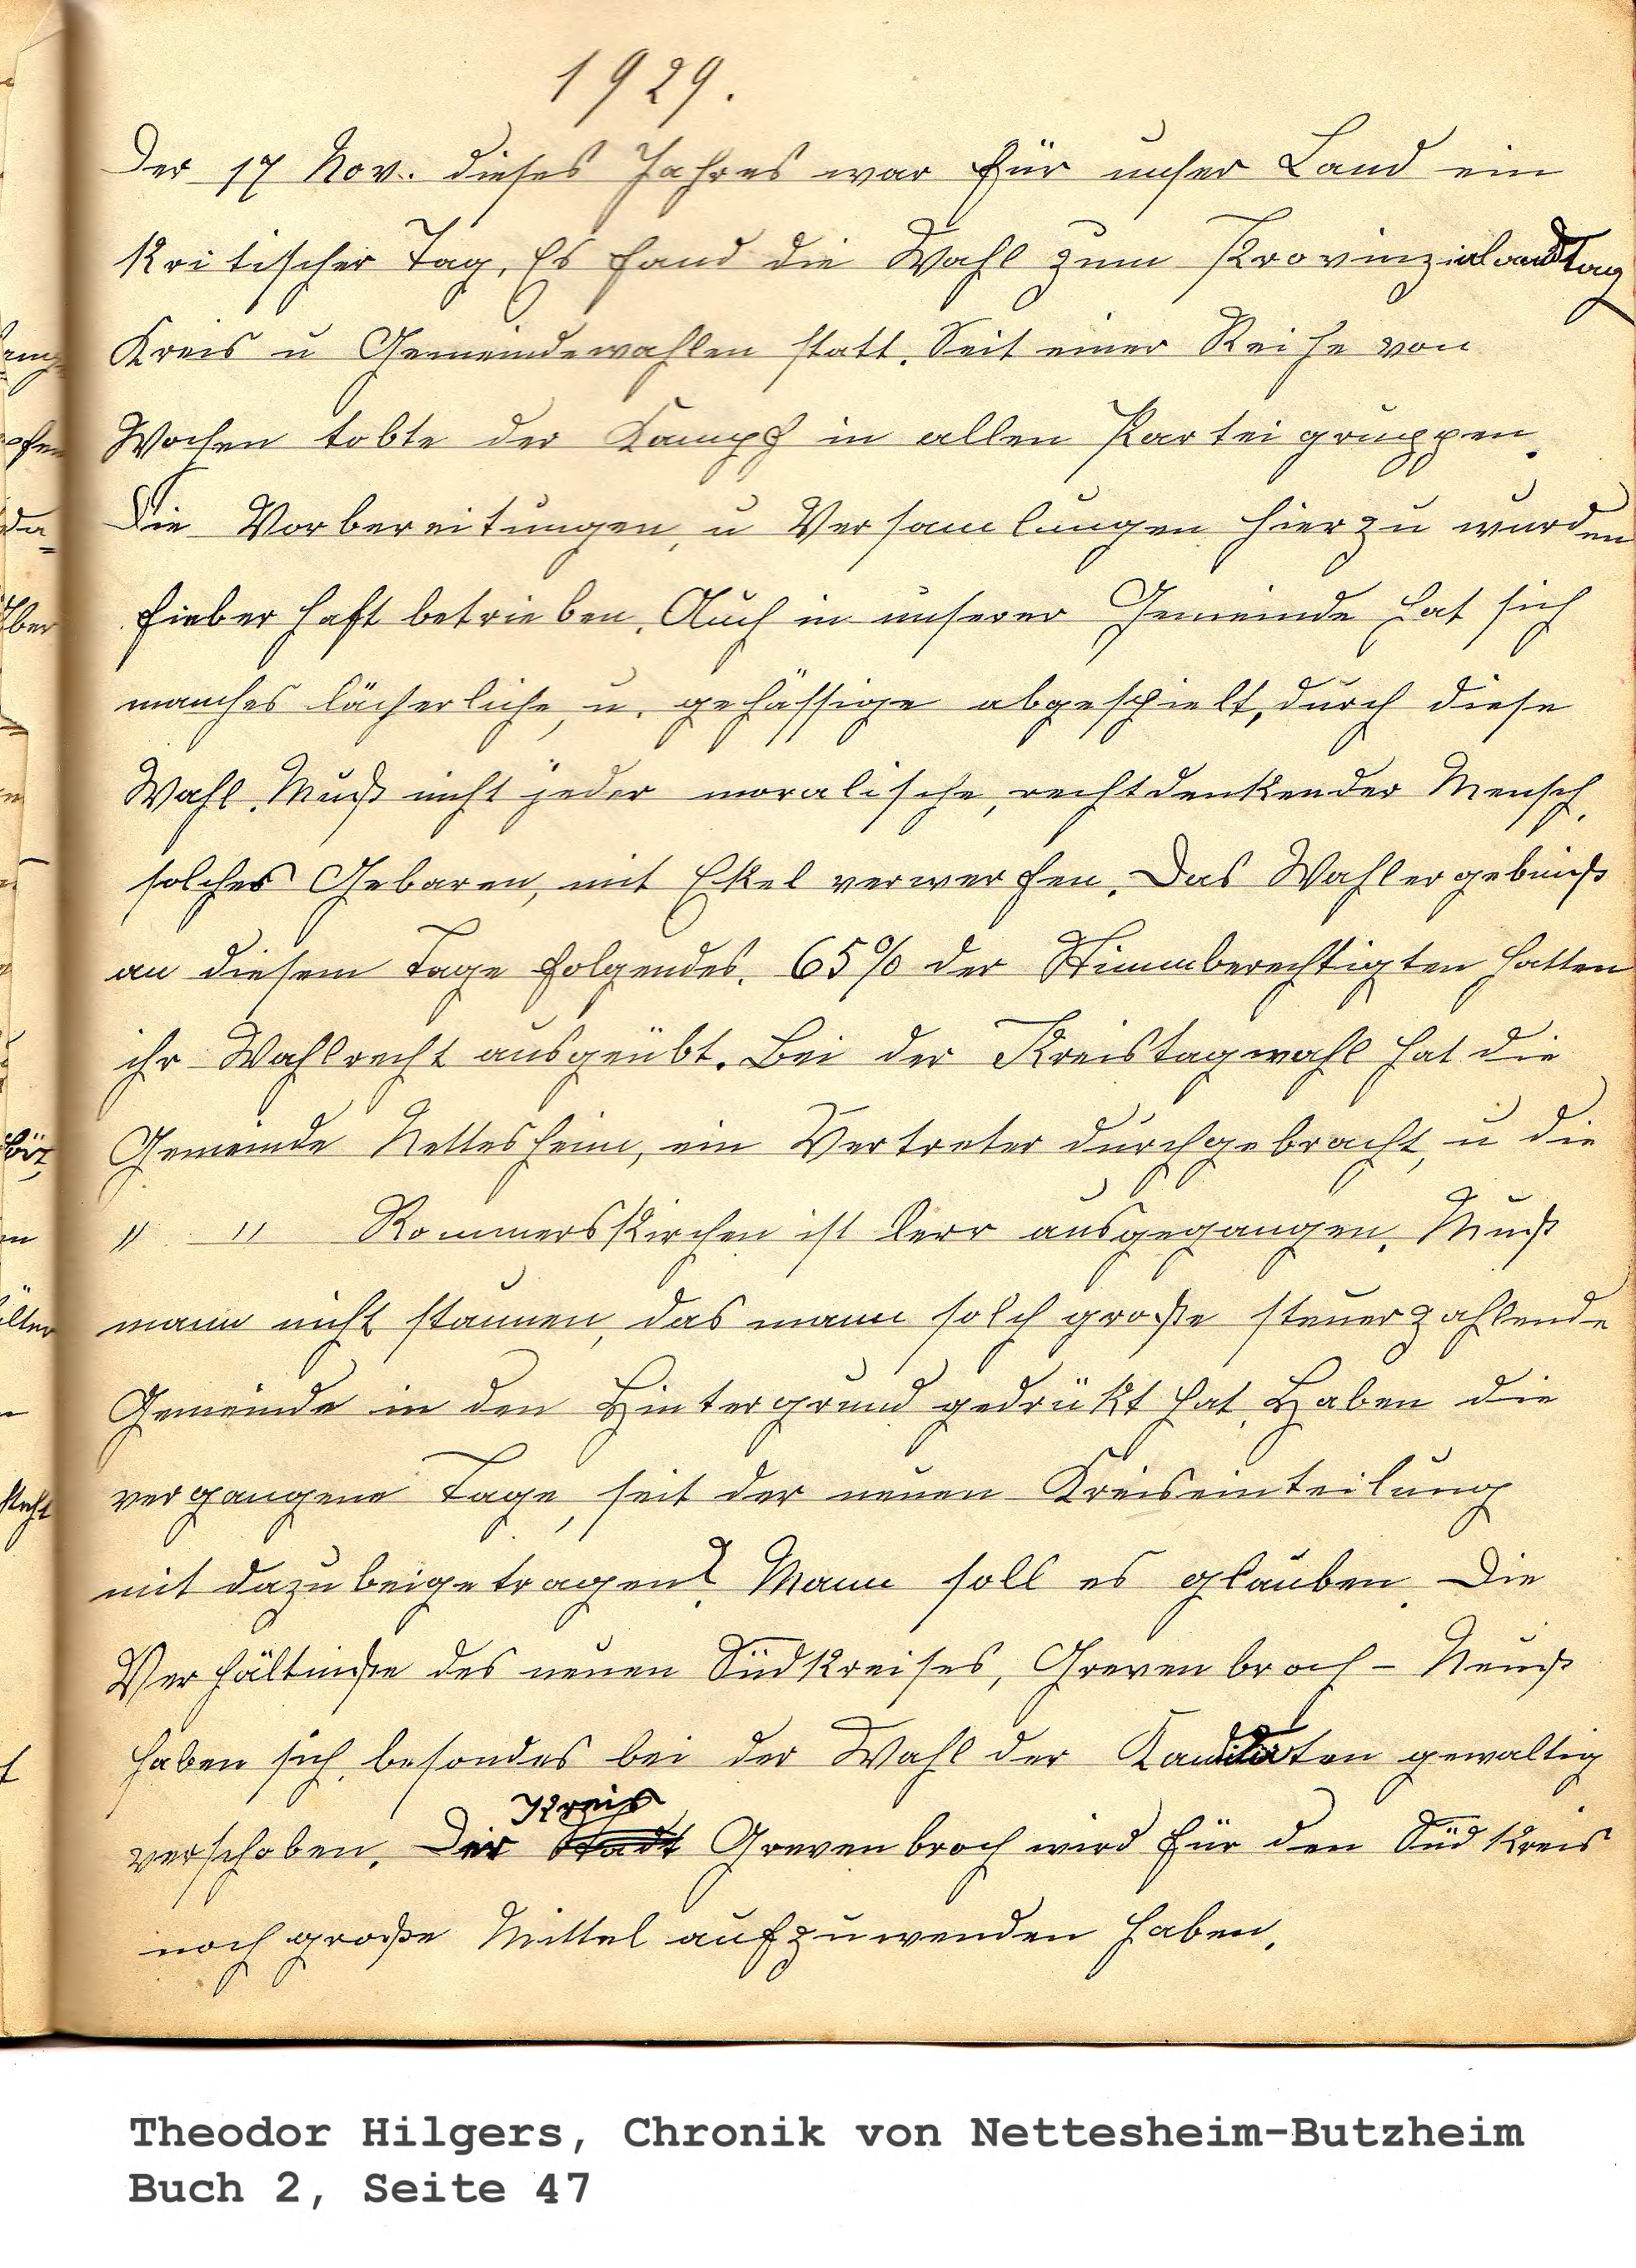 1929.
Der 17 Nov. dieses Jahres war für unser Land ein
kritischer Tag. Es fand die Wahl zum Provinzialandtag
Kreis u Gemeindewahlen statt. Seit einer Reihe von
Wochen tobte der Kampf in allen Parteigruppen.
Die Vorbereitungen, u Versamlungen hierzu wurden
fieberhaft betrieben. Auch in unserer Gemeinde hat sich
manches lächerliche, u. gehässige abgespielt, durch diese
Wahl. Muß nicht jeder moralische, rechtdenkender Mensch,
solches Gebaren, mit Ekel verwerfen. Das Wahlergebniß
an diesem Tage folgendes. 65% der Stimmberechtigten hatten
ihr Wahlrecht ausgeübt. Bei der Kreistagwahl hat die
Gemeinde Nettesheim, ein Vertreter durchgebracht, u die
" " Rommerskirchen ist lerr ausgegangen. Muß
mann nicht staunen, das mann solch große steuerzahlende
Gemeinde in den Hintergrund gedrükt hat. Haben die
vergangene Tage, seit der neuen Kreiseinteilung
mit dazubeigetragen? Mann soll es glauben. Die
Verhältniße des neuen Südkreises, Grevenbroch - Neuß
haben sich, besondes bei der Wahl der Kandidaten gewaltig
Kreis
verschoben. Der Stadt Grevenbroch wird für den Südkreis
noch große Mittel aufzuwenden haben.
Theodor Hilgers, Chronik von Nettesheim-Butzheim
Buch 2, Seite 47